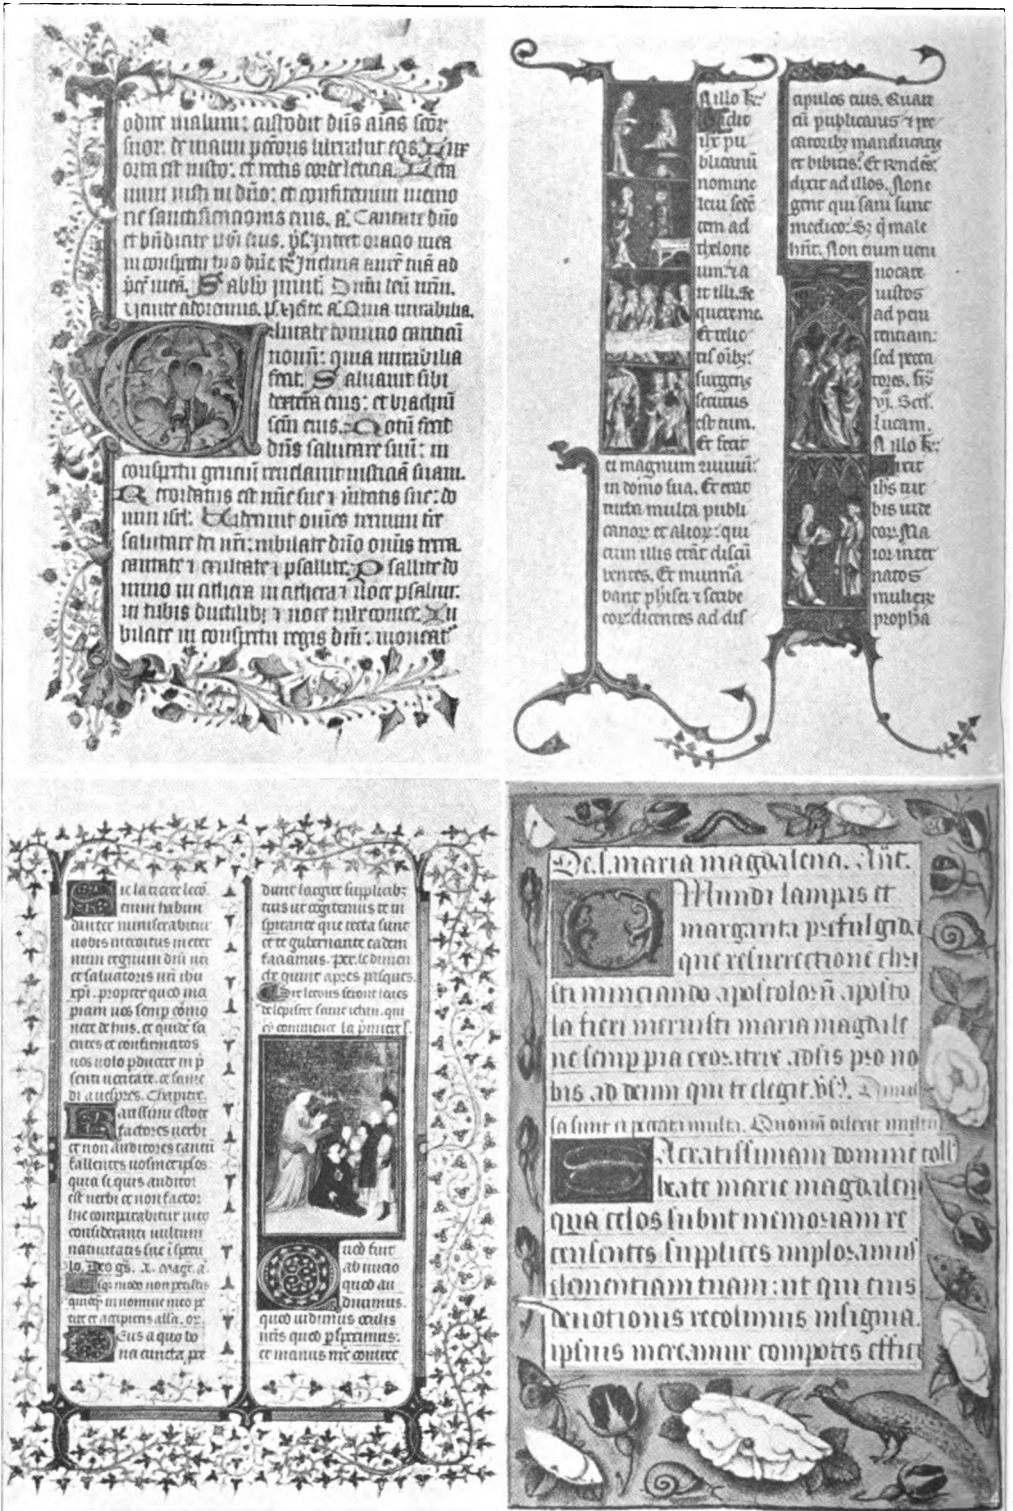 odite malum: custodit dn̄s aīas sc̄oꝝ
suoꝝ de manu pct̄oris liberabit eos. Lux
orta est iusto: et rectis corde leticia. Leta
mini iusti in dn̄o: et confitemini memo
rie sanctificationis eius. a. Cantate dn̄o
et bn̄dicite nōi eius. ps. Intret oracio mea
in conspectu tuo dn̄e. ℟. Inclina aurē tuā ad
p̄cē meā.
Venite adoremus. a. Quia mirabilia.
Cantate domino canticū
nouū: quia mirabilia
fecit. Saluauit sibi
dextera eius: et brachiū
sc̄m eius. Notū fecit
dn̄s salutare suū: in
conspectu genciū reuelauit iusticiā suam.
Recordatus est mīe sue et ueritatis sue: do
mui isrl. Uiderunt om̄es termini tr̄e
salutare dei nr̄i: iubilate dn̄o om̄is terra
cantate ⁊ exultate ⁊ psallite. Psallite do
mino in cithara in cithara ⁊ uoce psalmi:
in tubis ductilibꝫ ⁊ uoce tube cornee. Iu
bilate in conspectu regis dn̄i: moueat
In illo t̄:
uidit
ih̄c pu
blicanū
nomine
leui sedē
tem ad
thelone
um. ⁊ a
it illi. Se
quere me.
Et relic
tis oībꝫ:
surgens
secutus
est eum.
Et fecit
ei magnum
in domo sua. Et erat
turba multa publi
canoꝝ et alioꝝ: qui
cum illis erāt discū
bentes. Et murmura
bant pharisei ⁊ scribe
eoꝝ: dicentes ad dis
cipulos eius. Quare
cū publicanis ⁊ pec
catoribꝫ manducatis
et bibitis? Et respondēs
dixit ad illos. Non
egent qui sani sunt
medico: Sꝫ q̄ male
hn̄t. Non enim ueni
uocare
iustos
ad peni
tenciam:
sed pecca
tores.
Lucam.
In illo t̄:
Dixit
ih̄s tur
bis iude
oꝝ: Ma
ior inter
natos
mulieꝝ
proph̄a
Sic la tierce lecō.
enim habun
danter ministrabitur
uobis introitus in eter
num regnum dn̄i nr̄i
et saluatoris nr̄i ihū
xp̄i. propter quod inci
piam uos semp cōmo
nere de hiis. et quidē sci
entes et confirmatos
uos
senti ueritate.
di a uespres. Chapitre.
Karissimi estote
factores uerbi
et non auditores tantū
fallentes uosmetipsos
quia si quis auditor
est uerbi et non factor
hic comparabitur uiro
consideranti uultum
natiuitatis sue ī specu
lo. Deo gr̄s.
Usqꝫ modo non petistis
quicqꝫ in nomine meo pe
tite et accipietis alla. or.
Deus a quo bo
na cuncta pro
dunt largire supplicibꝫ
tuis ut cogitemus te in
spirante que recta sunt
et te gubernante eadem
faciamus. per. le dimen
che quint apres pasques.
Sic lecons seront laies
de lepistre saint iehan. qui
cy commence la p̄miere l.
Quod fuit
ab inicio
quod au
diuimus.
quod uidimus oculis
nr̄is quod p̄speximus:
et manus nr̄e contrec
De. s. maria magdalena. Añt.
O Mundi lampas et
margarita prefulgida
que resurrectione chri
sti nunciando apostolorū aposto
la fieri meruisti maria magdale
ne semp pia exoratrix adsis pro no
bis ad deum qui te elegit. v̄s. Dimis
sa sunt ei peccata multa. Quoniā dilexit multū
Sacratissimam domine
beate marie magdalen
qua celos subiit memoriam re
censentes supplices imploramus
clementiam tuam: ut qui eius
deuotionis recolimus insignia.
ipsius mereamur compotes effici